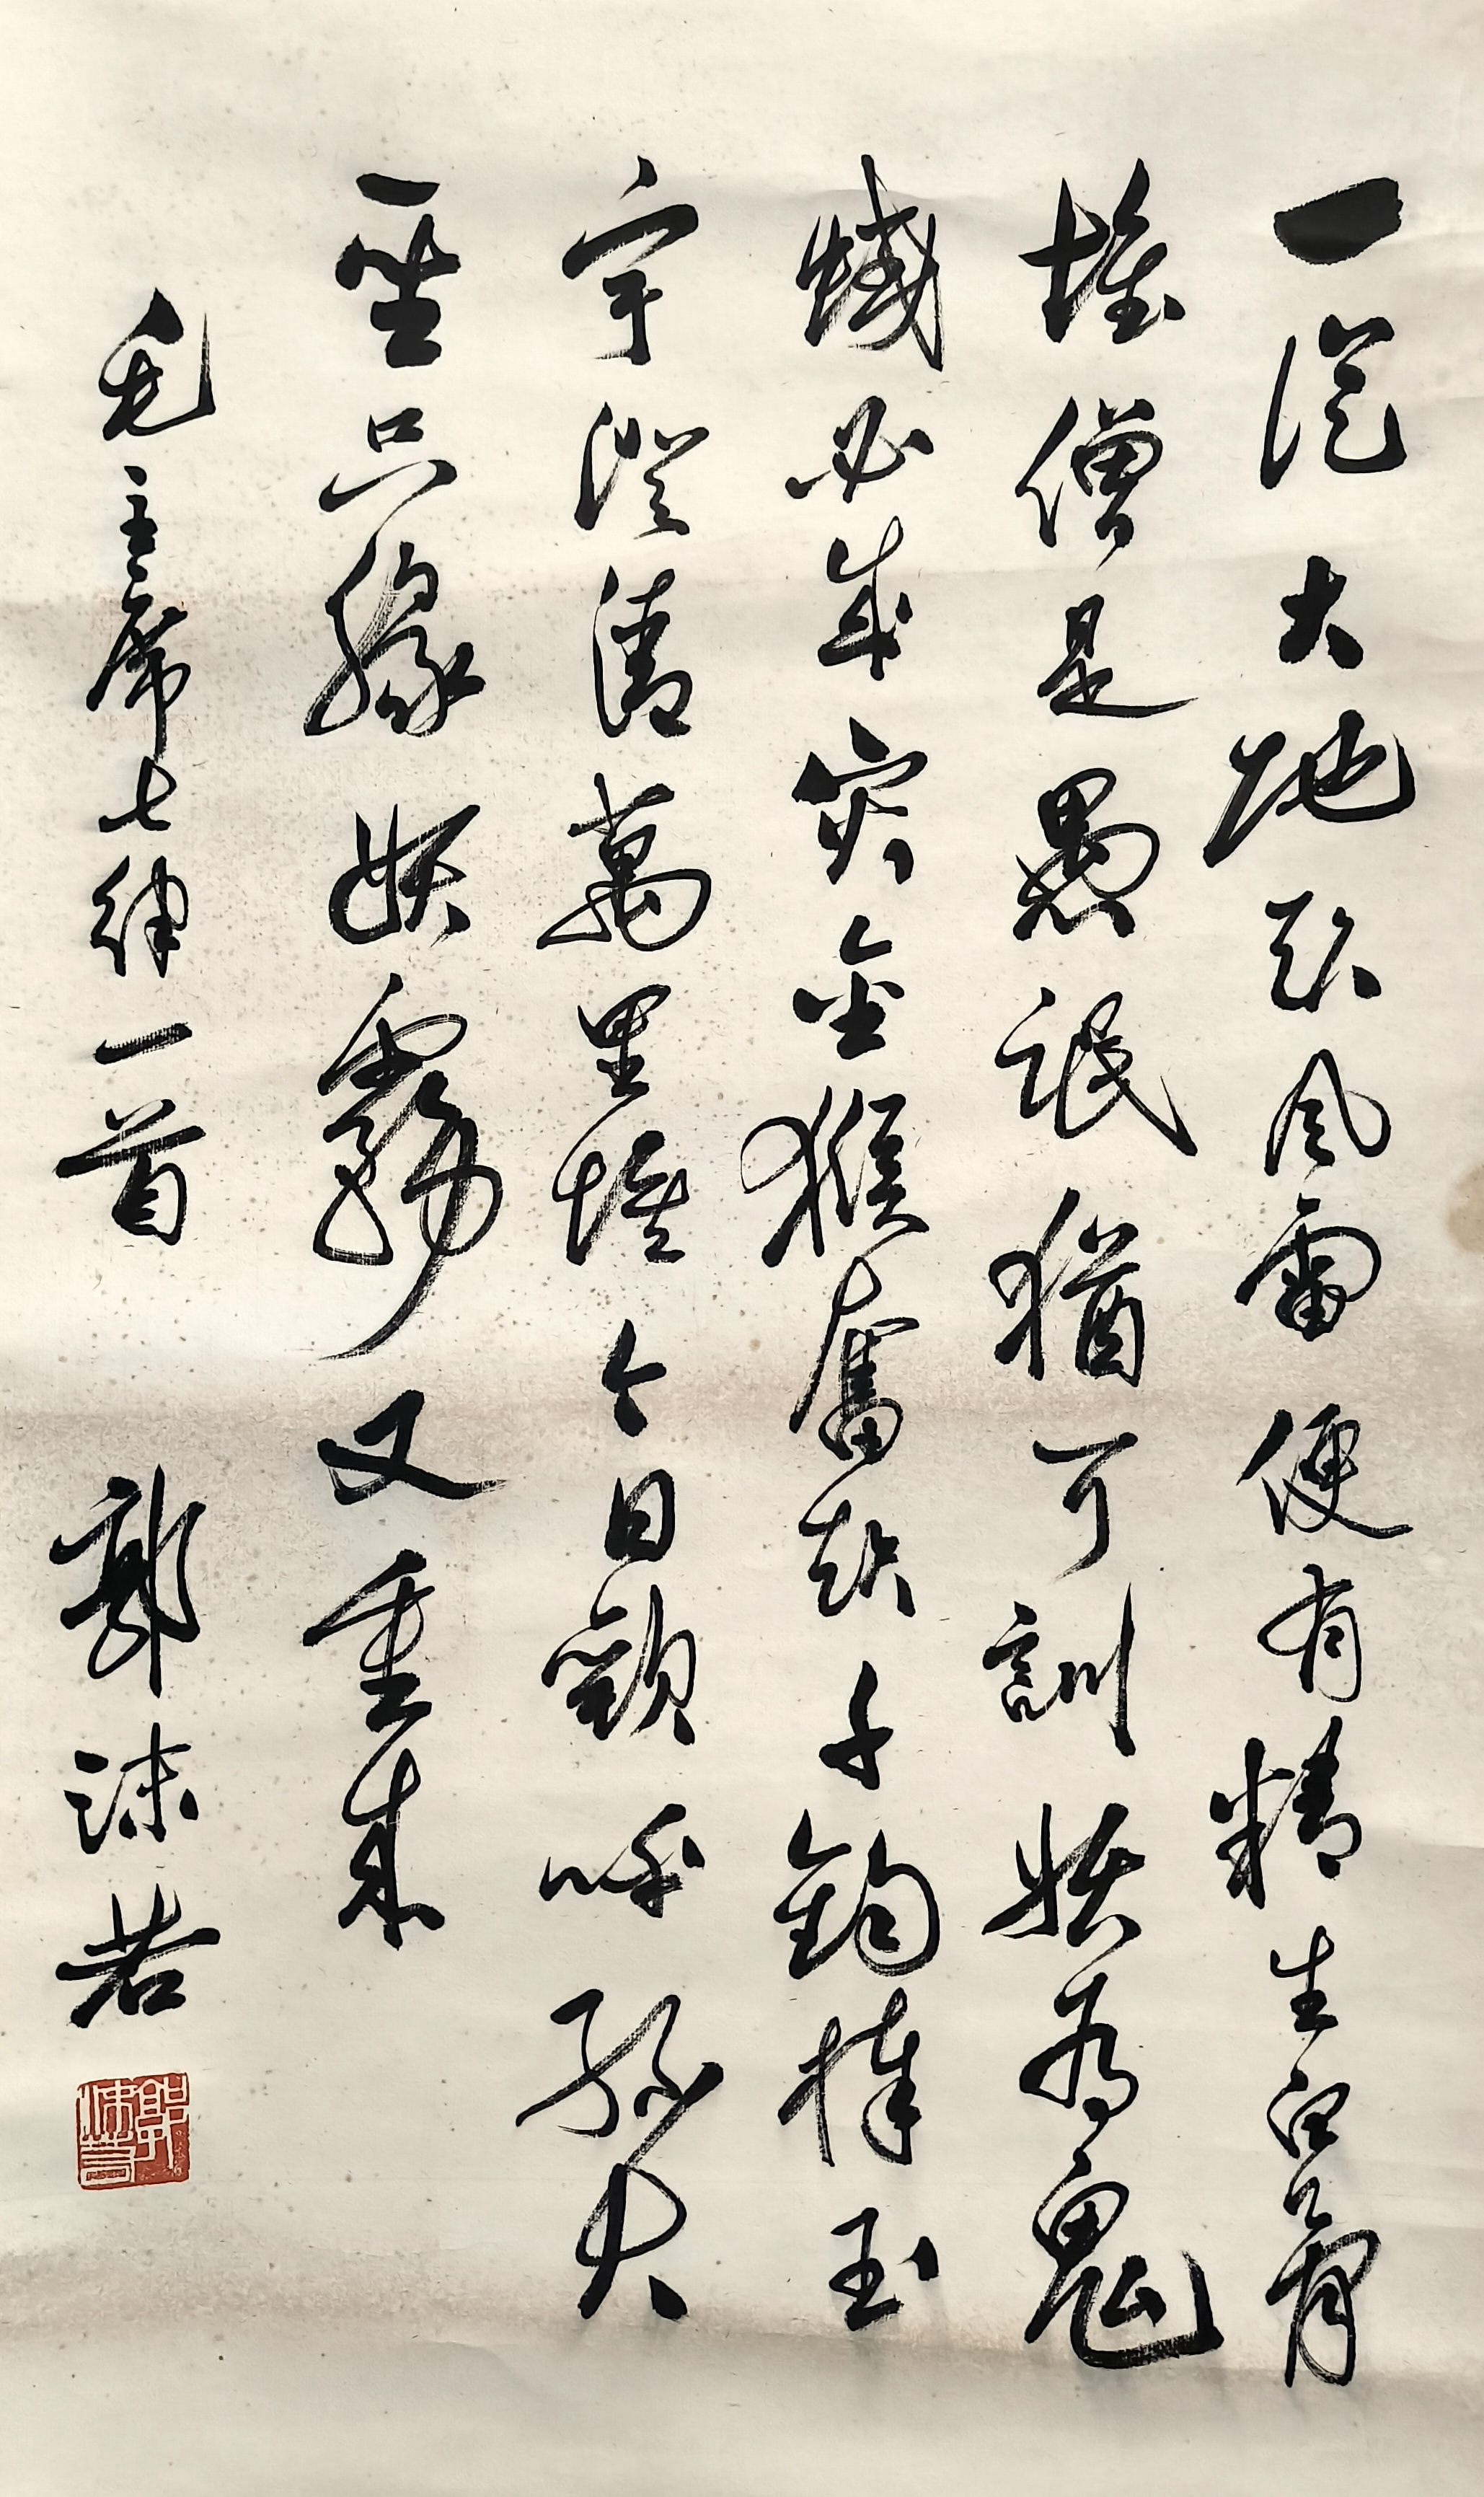 一從大地起風雷便有精生白骨
堆僧是愚氓猶可訓妖為鬼
蜮必成灾金猴奮起千鈞棒玉
宇澄清萬里埃今日歡呼孫大
聖只緣妖霧又重來
毛主席七律一首 郭沫若
郭沫若